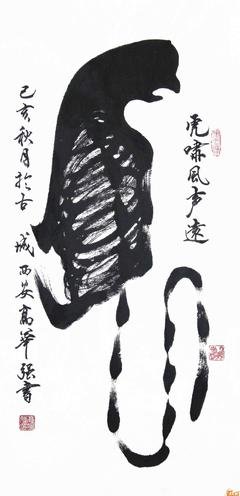 虎啸风声远
己亥秋月於古
城西安高华强書